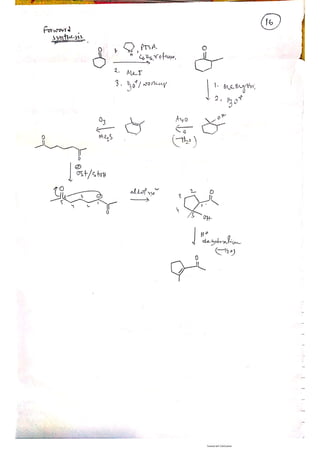 16
Forward
synthesis.
O
1. N H, PTSA,
C6H6, reflux.
2. MeI
3. H3O+/workup
O
1. MeMgBr.
2. H3O+
OH
Al2O3
Δ
(-H2O)
O3
Me2S
O
O
OEt/EtOH
O
O
aldol rxn
1
2
3
4
5
O
OH
H+
dehydration
(-H2O)
O